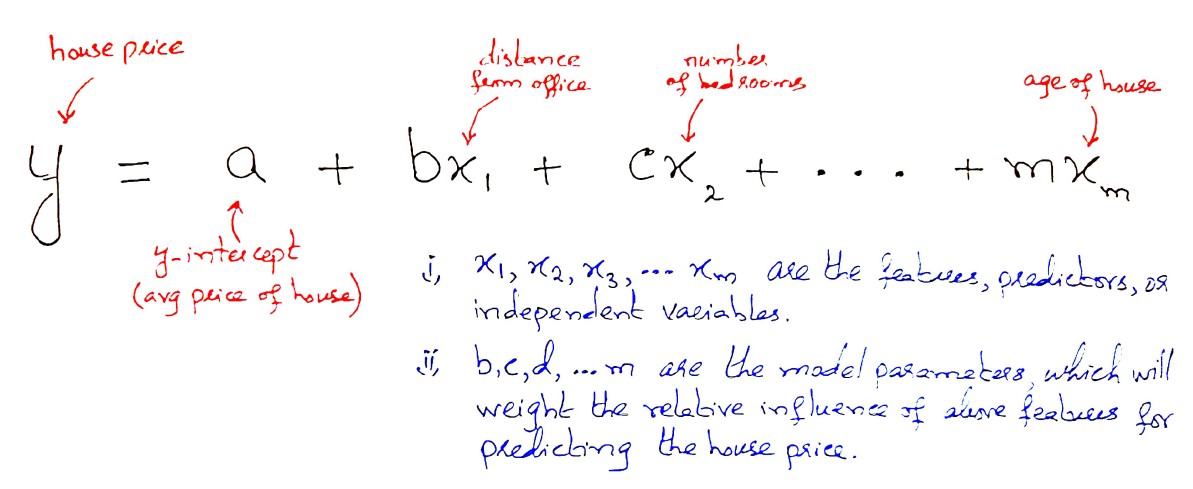 house price
distance
from office
number
of bedrooms
age of house
y = a + bx₁ + cx₂ + . . . + mxₘ
y-intercept
(avg price of house)
i, x₁, x₂, x₃, ... xₘ are the features, predictors, or
independent variables.
ii, b,c,d, ... m are the model parameters, which will
weight the relative influence of above features for
predicting the house price.